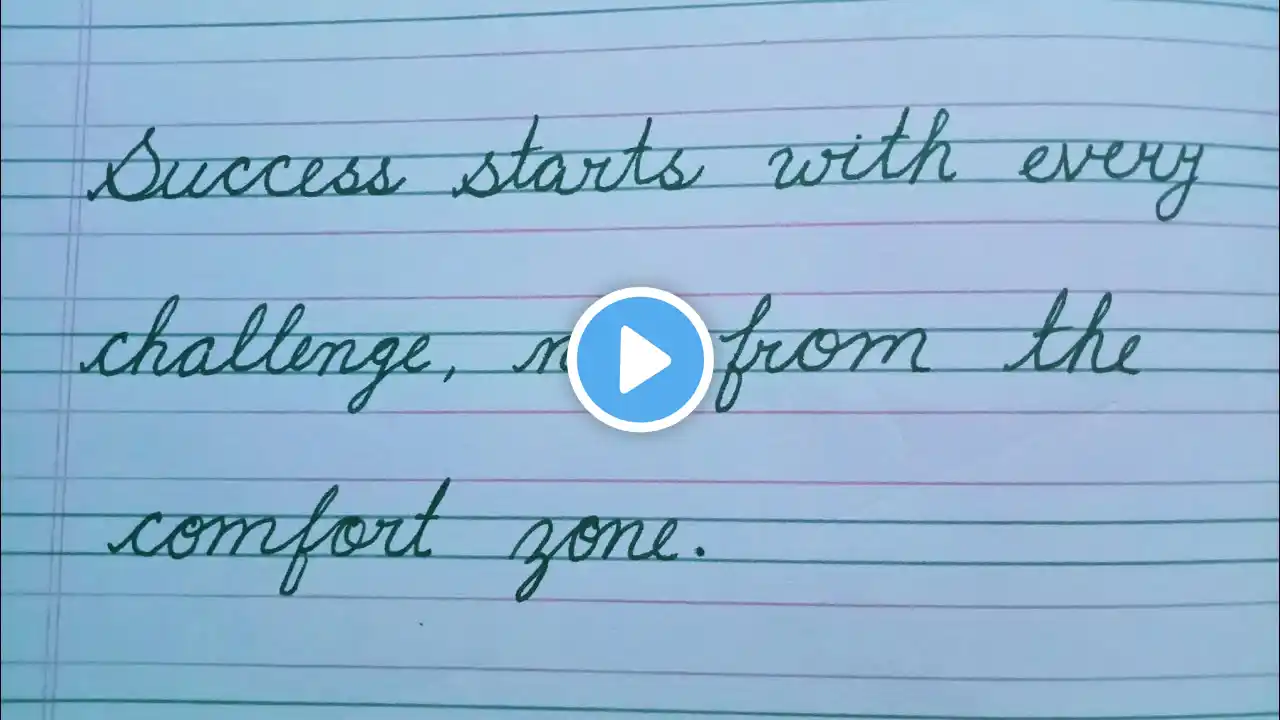 Success starts with every
challenge, from the
comfort zone.